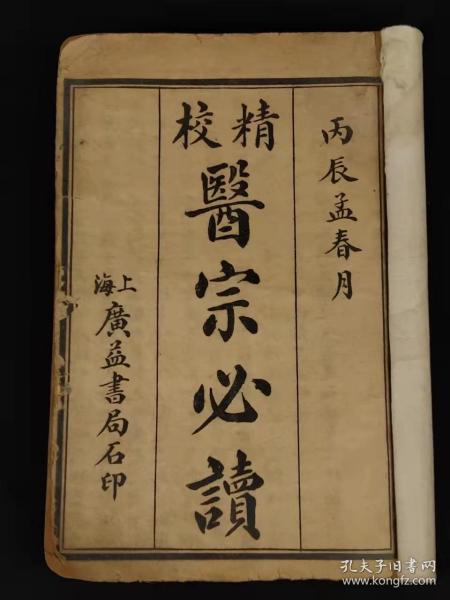 丙辰孟春月
精校
醫宗必讀
上海
廣益書局石印
孔夫子旧书网
www.kongfz.com